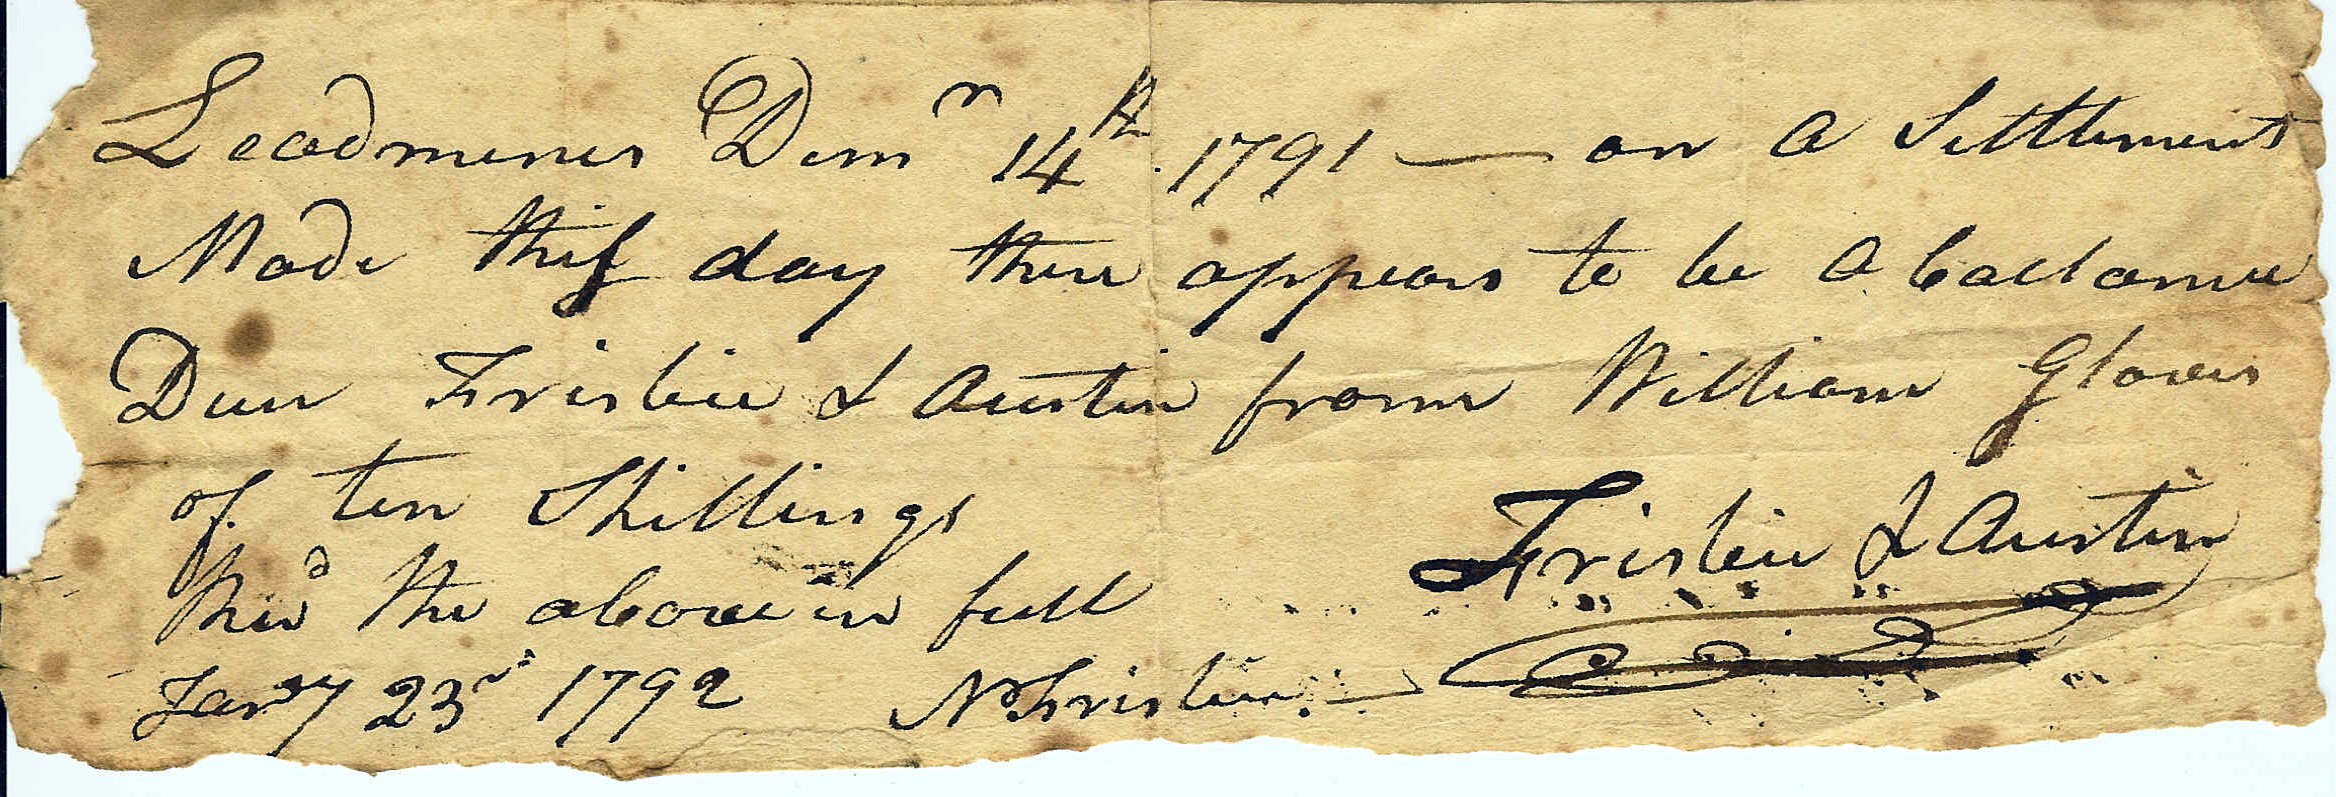 Leadmines Decmr 14th 1791 — on a Settlement
Made this day there appears to be a ballance
Due Frisbie & Austin from William Glover
of ten Shillings
Frisbie & Austin
Recd the above in full
Jany 23d 1792 N Frisbie